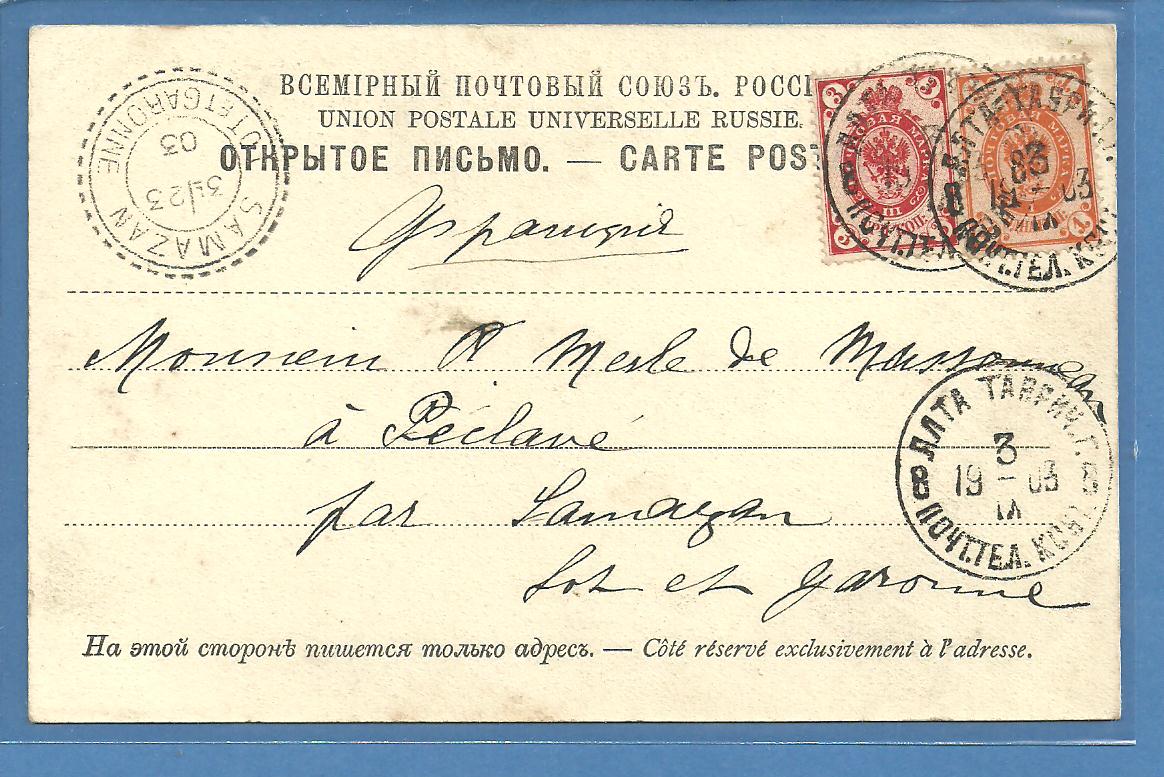 ВСЕМІРНЫЙ ПОЧТОВЫЙ СОЮЗЪ. РОССІ
UNION POSTALE UNIVERSELLE RUSSIE.
ОТКРЫТОЕ ПИСЬМО. — CARTE POST
Франція
Monsieur R Merle de Massonneau
à Péclavé
par Samazan
Lot et Garonne
На этой сторонѣ пишется только адресъ. — Côté réservé exclusivement à l'adresse.
SAMAZAN
LOT ET GARONNE
23
03
3
3
3
ПОЧТОВАЯ МАРКА
III
ПОЧТОВАЯ МАРКА
1
ЯЛТА ТАВРИЧ. Г.
3
19 – 03
IX
8 8
ПОЧТ.ТЕЛ. КОНТ.